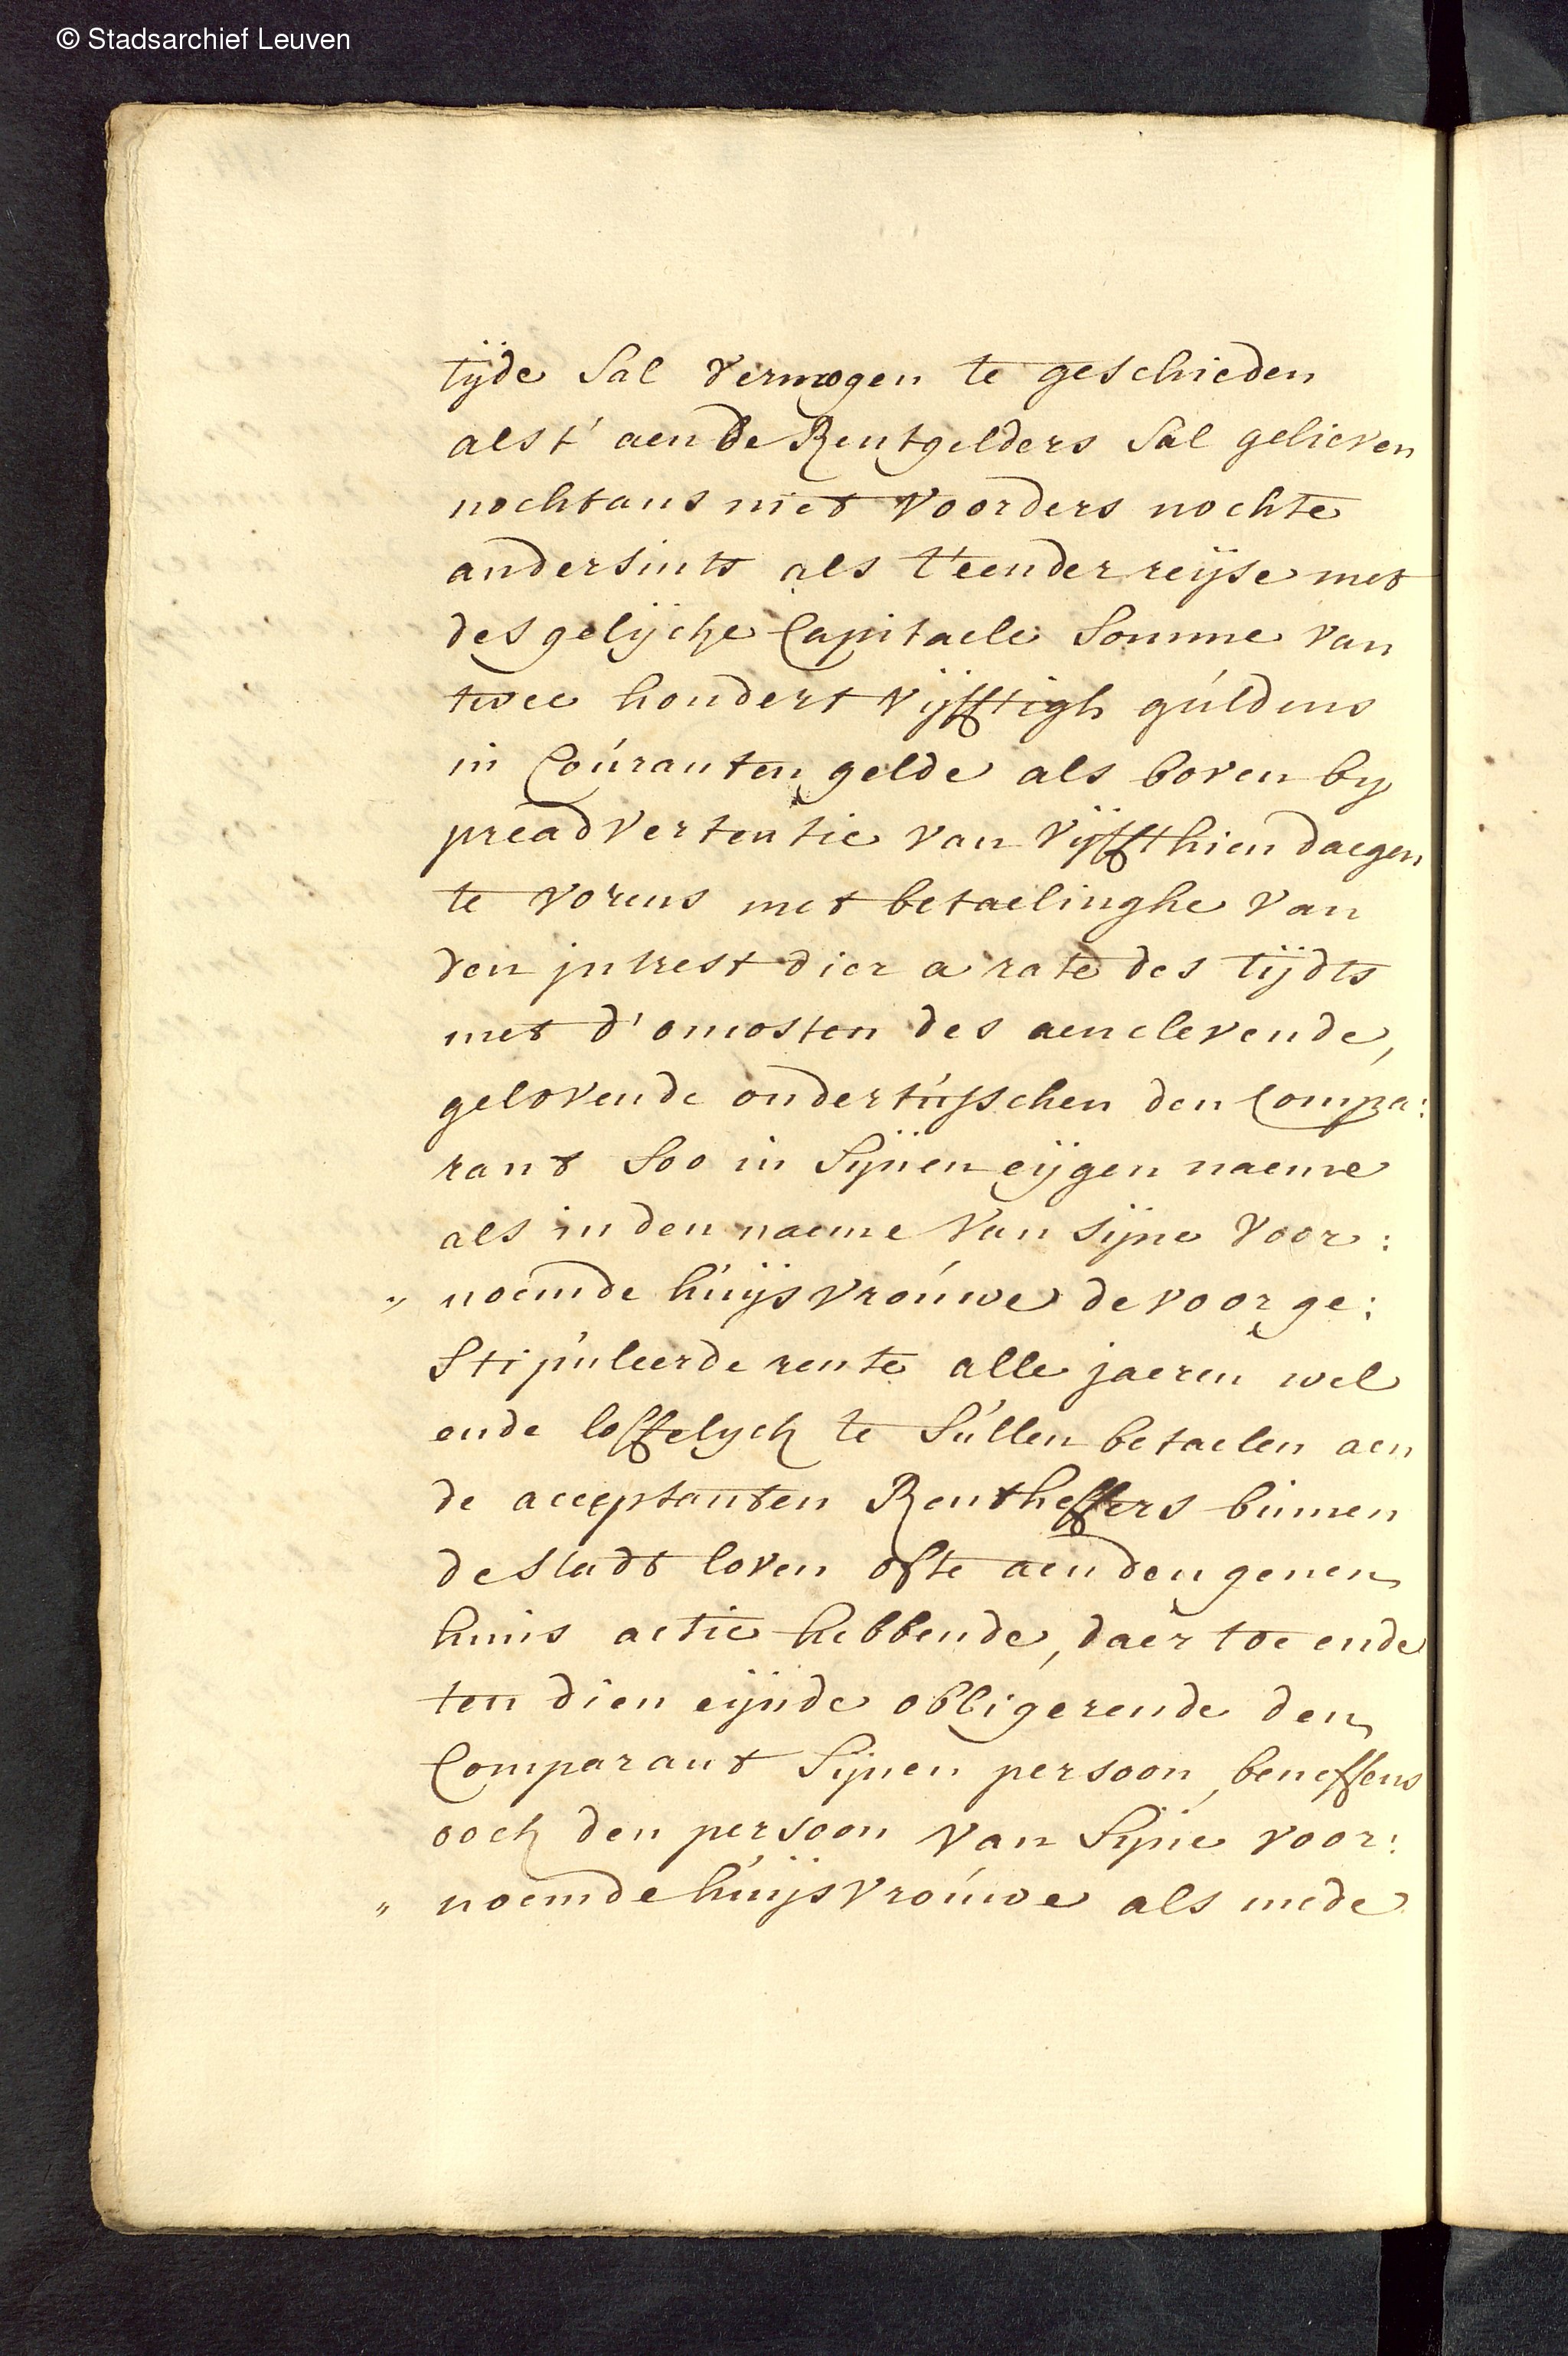 © Stadsarchief Leuven
tijde Sal vermogen te geschieden
als t' aen de Rentgelders Sal gelieven
nochtans niet voorders nochte
andersints als t'eender reijse met
desgelijcke Capitaele Somme van
twee hondert vijfftigh gúldens
in Coúranten gelde als boven by
preadvertentie van vijffthien daegen
te vorens met betaelinghe van
den jntrest dier a rate des tijdts
met d'omosten des aenclevende,
gelovende ondertússchen den Compa:
rant Soo in Sijnen eijgen naeme
als in den naeme van sijne voor:
„ noemde húijsvroúwe de voorge:
Stipúleerde rente alle jaeren wel
ende loffelijck te Súllen betaelen aen
de acceptanten Rentheffers binnen
de Stadt loven ofte aen den genen
huns actie hebbende, daer toe ende
ten dien eijnde obligerende den
Comparant Sijnen persoon, beneffens
oock den persoon van Sijne voor:
„ noemde húijsvroúwe als mede